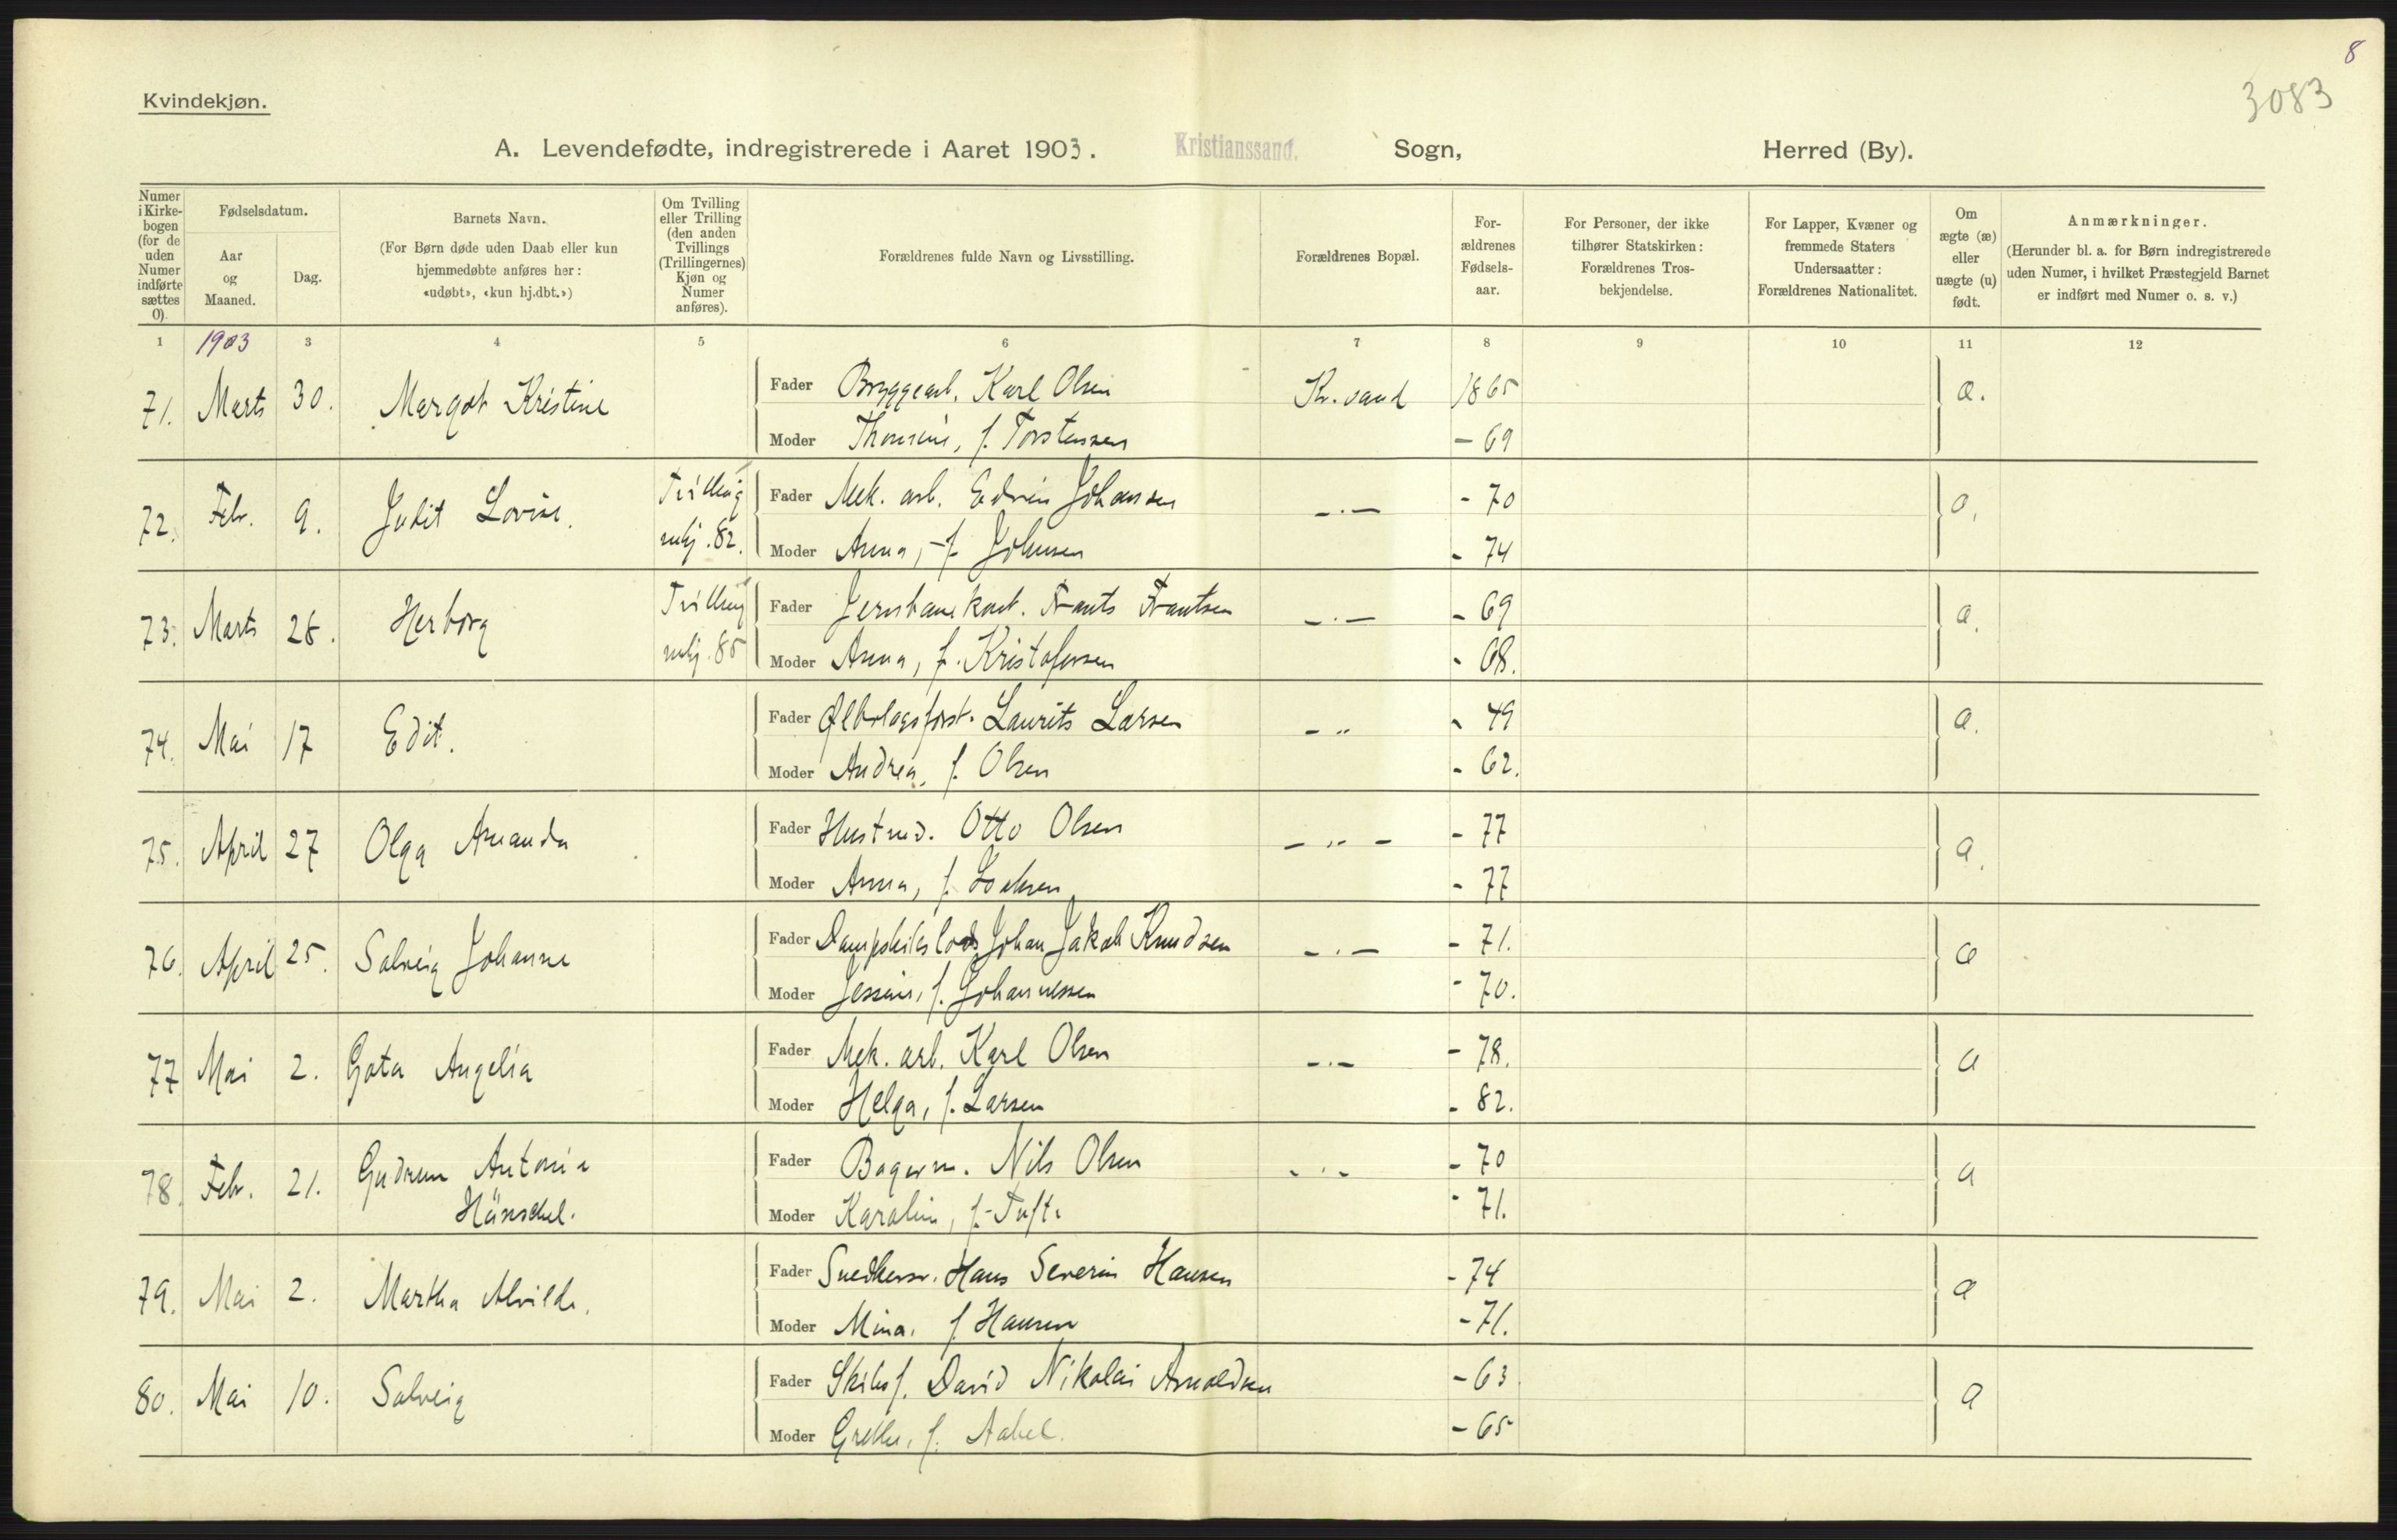 8
3083
Kvindekjøn.
A. Levendefødte, indregistrerede i Aaret 1903. Kristianssand. Sogn, Herred (By).
Numer i Kirkebogen (for de uden Numer indførte sættes 0).
Fødselsdatum.
Aar og Maaned.
Dag.
Barnets Navn.
(For Børn døde uden Daab eller kun
hjemmedøbte anføres her:
«udøbt», «kun hj.dbt.»)
Om Tvilling
eller Trilling
(den anden
Tvillings
(Trillingernes)
Kjøn og
Numer
anføres).
Forældrenes fulde Navn og Livsstilling.
Forældrenes Bopæl.
For-
ældrenes
Fødsels-
aar.
For Personer, der ikke
tilhører Statskirken:
Forældrenes Tros-
bekjendelse.
For Lapper, Kvæner og
fremmede Staters
Undersaatter:
Forældrenes Nationalitet.
Om
ægte (æ)
eller
uægte (u)
født.
Anmærkninger.
(Herunder bl. a. for Børn indregistrerede
uden Numer, i hvilket Præstegjeld Barnet
er indført med Numer o. s. v.)
1 1903 3 4 5 6 7 8 9 10 11 12
71. Marts 30. Margot Kristine Fader Bryggearb. Karl Olsen Kr.sand 1865 æ.
Moder Thomine, f. Torstensen - 69
72. Febr. 9. Judit Lovise. Tvilling Fader Mek. arb. Edvin Johansen -.- - 70
mkj. 82. Moder Anna, f. Johnsen - 74
73. Marts 28. Herborg Tvilling Fader Jernbanekont. Frants Frantsen -.- - 69 æ.
mkj. 85 Moder Anna, f. Kristofersen - 68.
74. Mai 17 Edit. Fader Ølbolagsforst. Laurits Larsen - " - 49 æ.
Moder Andrea, f. Olsen - 62.
75. April 27 Olga Amanda Fader Otto Olsen - " - - 77 æ.
Moder Anna, f. - 77
76. April 25. Solveig Johanne Fader Dampskibslods Johan Jakob Knudsen -.- - 71. æ
Moder Jessine, f. Johannessen - 70.
77 Mai 2. Gota Angelia Fader Mek. arb. Karl Olsen -.- - 78. æ
Moder Helga, f. Larsen - 82.
78. Febr. 21. Gudrun Antonie Fader Bagerm. Nils Olsen -.- - 70 æ
Hänschel. Moder Karoline, f. Tufte - 71.
79. Mai 2. Martha Alvilde. Fader Snedkersv. Hans Severin Hansen - 74 æ
Moder Mina, f Hansen - 71.
80. Mai 10. Solveig Fader Skibsf. David Nikolai Arnoldsen - 63 æ
Moder Grethe, f. Aabel. - 65